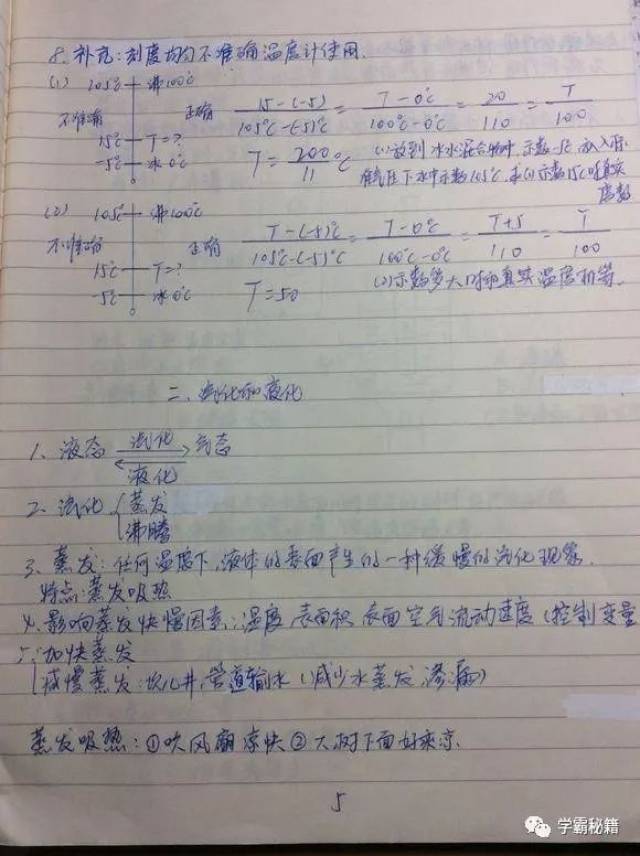 8. 补充：刻度均匀不准确温度计使用.
(1) 105℃ 沸100℃
不准确 正确 15-(-5)/105℃-(-5)℃ = T-0℃/100℃-0℃ = 20/110 = T/100
15℃ T=?
-5℃ 冰0℃
T=200/11℃ (1)放到冰水混合物中,示数-5℃ 放入标
准气压下水中示数105℃,求(1)示数15℃时真实
度数
(2) 105℃ 沸100℃
不准确 正确 T-(-5)℃/105℃-(-5)℃ = T-0℃/100℃-0℃ = T+5/110 = T/100
15℃ T=?
-5℃ 冰0℃
T=50 (2)示数多大时和真实温度相等.
二、汽化和液化
1、液态 汽化 气态
液化
2、汽化 蒸发
沸腾
3、蒸发：任何温度下,液体的表面产生的一种缓慢的汽化现象.
特点:蒸发吸热
4、影响蒸发快慢因素：温度,表面积,表面空气流动速度(控制变量
5、加快蒸发
减慢蒸发:坎儿井,管道输水(减少水蒸发,渗漏)
蒸发吸热：①吹风扇凉快②大树下面好乘凉.
5
学霸秘籍